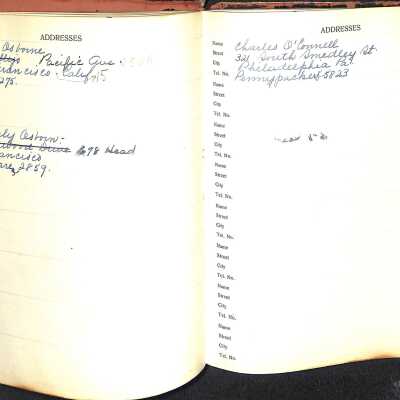 ADDRESSES
Osborne
Pacific Ave.
Francisco. Calif. 15
275.
Osborn.
98 Head
Francisco
2859.
ADDRESSES
Name Charles O'Connell
Street 321 South Smedley St.
City Philadelphia Pa.
Tel. No. Pennypacker 5823
Name
Street
City
Tel. No.
Name
Street
City
Tel. No.
Name
Street
City
Tel. No.
Name
Street
City
Tel. No.
Name
Street
City
Tel. No.
Name
Street
City
Tel. No.
Name
Street
City
Tel. No.